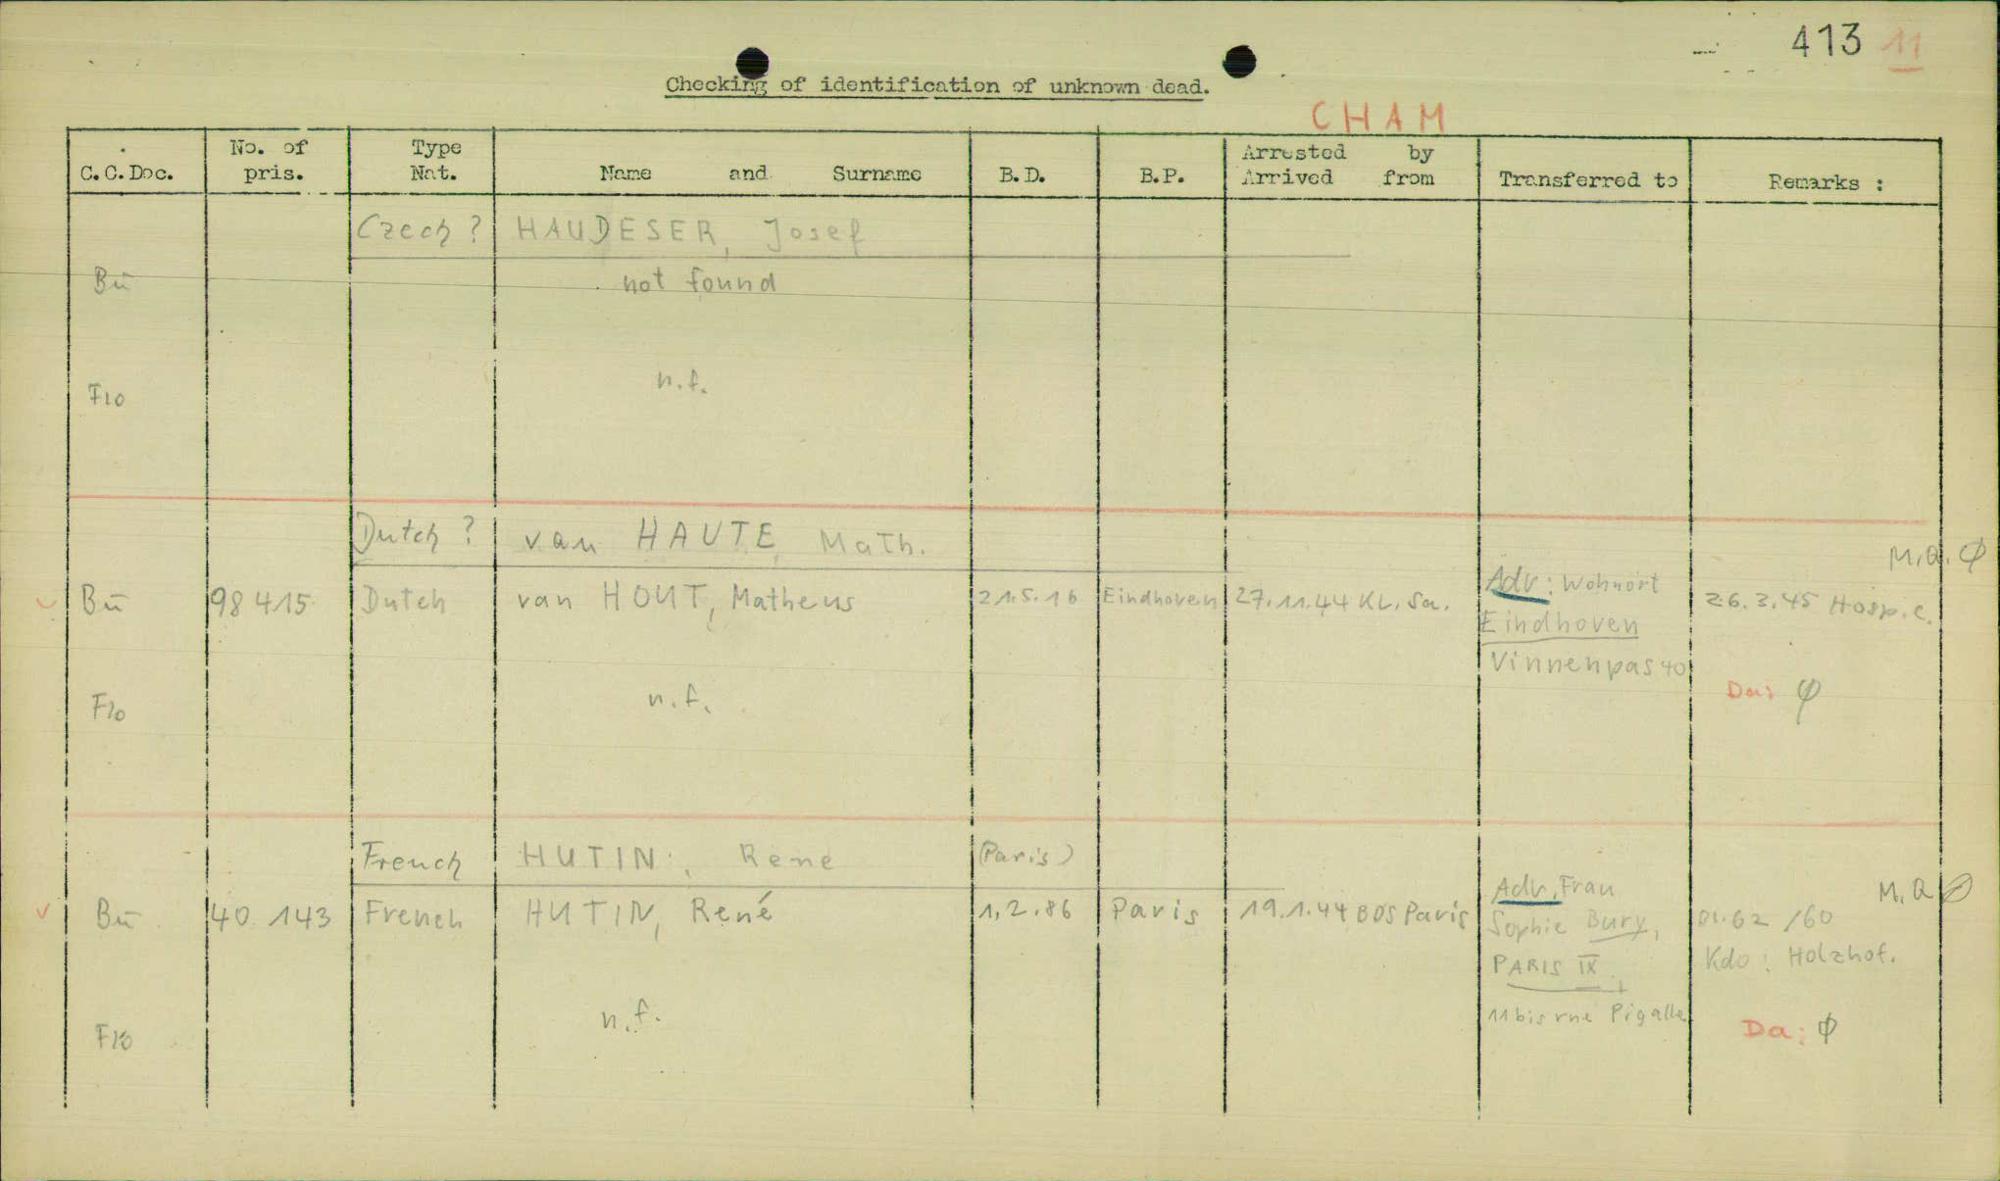 413 11
Checking of identification of unknown dead.
CHAM
C.C.Doc. No. of pris. Type Nat. Name and Surname B.D. B.P. Arrested by Arrived from Transferred to Remarks :
Czech ? HAUDESER, Josef
Bu not found
Flo n.f.
Dutch ? van HAUTE, Math.
M.Q. φ
Bu 98415 Dutch van HOUT, Matheus 21.5.16 Eindhoven 27.11.44 KL. Sa. Adr: Wohnort 26.3.45 Hosp. C.
Eindhoven
Vinnenpas 40
Flo n.f. Da: φ
French HUTIN, Rene (Paris)
M.Q φ
Bu 40 143 French HUTIN, René 1.2.86 Paris 19.1.44 BDS Paris Adr. Frau
Sophie Bury, Bl. 62 /60
PARIS IX Kdo: Holzhof.
11 bis rue Pigalle
Flo n.f. Da: φ